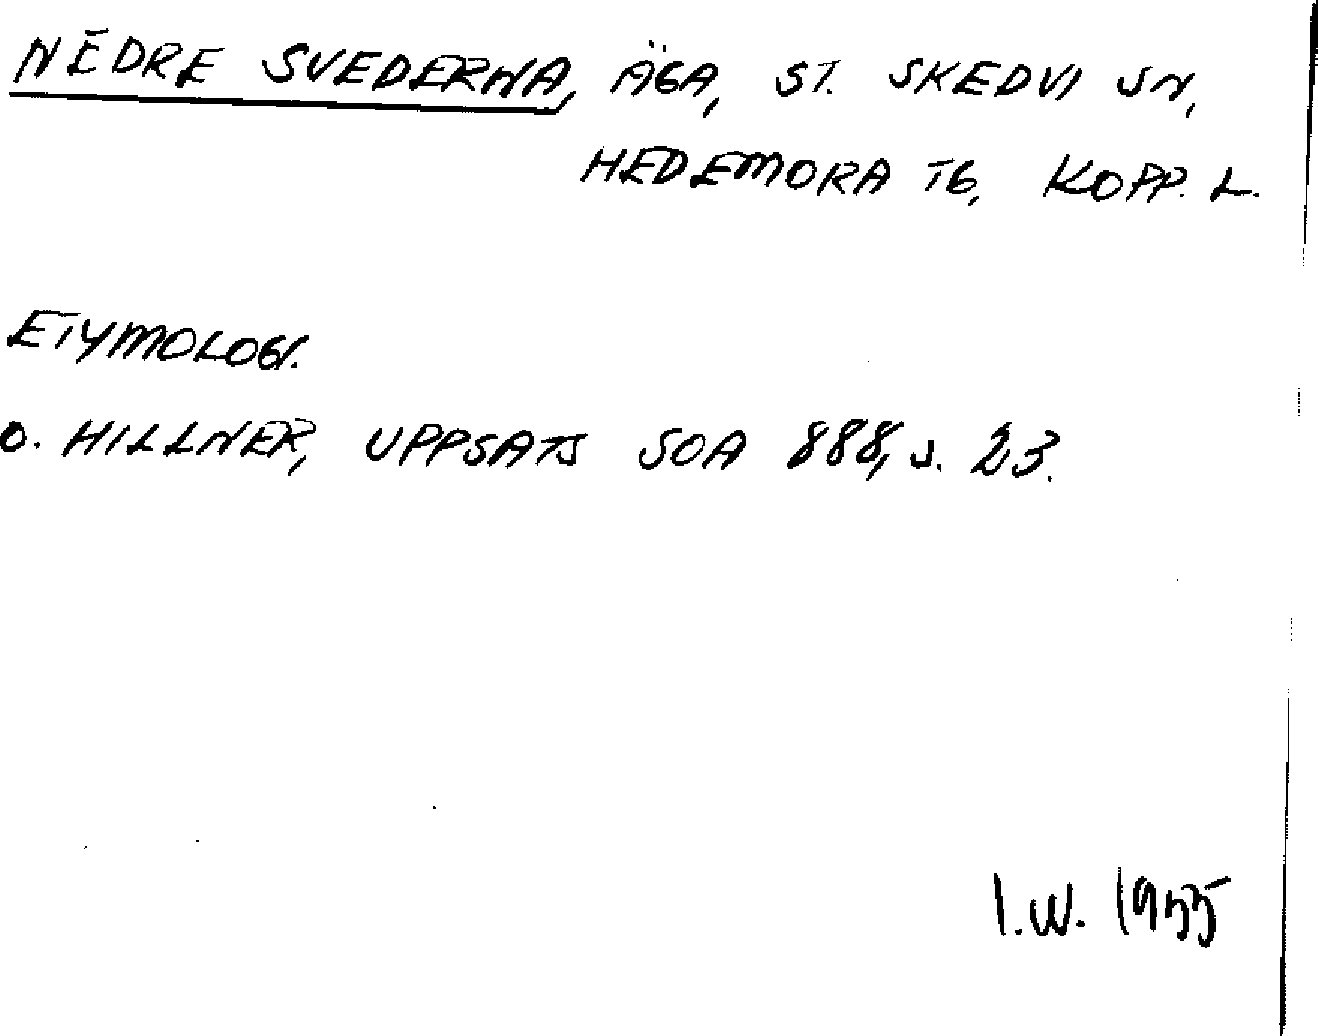 NEDRE SVEDERNA, ÄGA, ST. SKEDVI SN,
HEDEMORA TG, KOPP. L.
ETYMOLOGI.
O. HILLNER, UPPSATS SOA 888, S. 23.
I.W. 1955